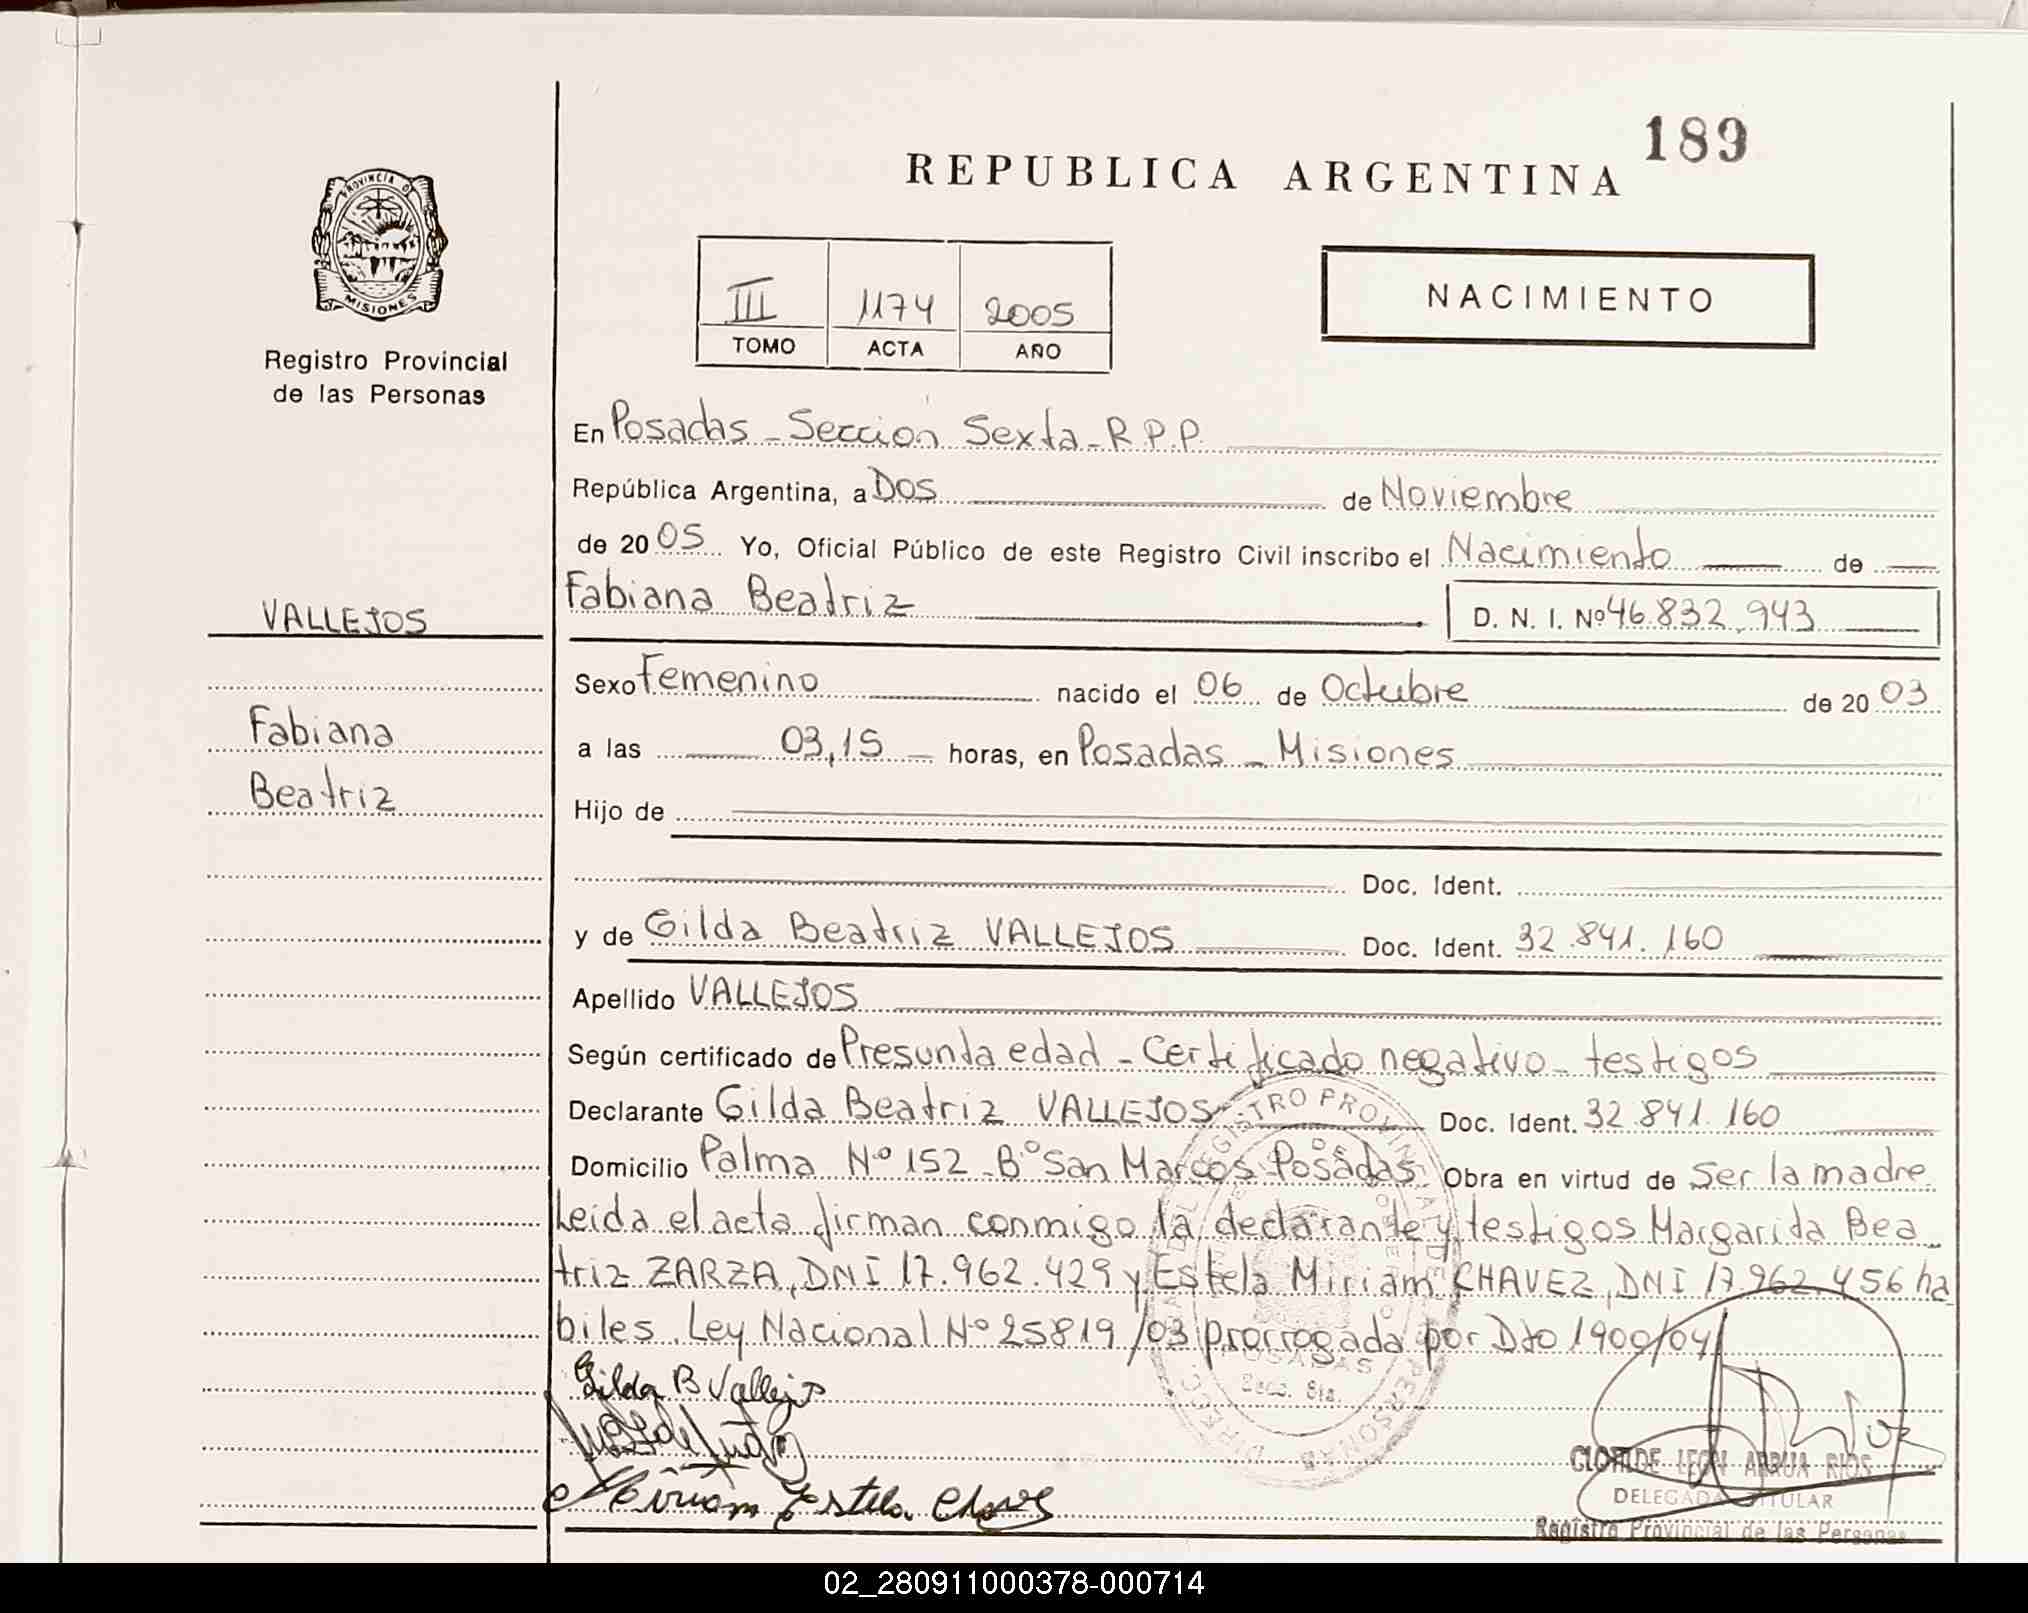 189
REPUBLICA ARGENTINA
PROVINCIA DE
MISIONES
Registro Provincial
de las Personas
III 1174 2005
TOMO ACTA AÑO
NACIMIENTO
En Posadas - Sección Sexta - R.P.P.
República Argentina, a DOS de Noviembre
de 20 05 Yo, Oficial Público de este Registro Civil inscribo el Nacimiento de
Fabiana Beatriz D. N. I. Nº 46.832.943
VALLEJOS
Fabiana
Beatriz
Sexo Femenino nacido el 06 de Octubre de 20 03
a las 03,15 horas, en Posadas - Misiones
Hijo de
Doc. Ident.
y de Gilda Beatriz VALLEJOS Doc. Ident. 32.841.160
Apellido VALLEJOS
Según certificado de Presunta edad - Certificado negativo - testigos
Declarante Gilda Beatriz VALLEJOS Doc. Ident. 32.841.160
Domicilio Palma Nº 152 - Bº San Marcos, Posadas Obra en virtud de Ser la madre
Leída el acta firman conmigo la declarante y testigos Margarida Bea-
triz ZARZA, DNI 17.962.429 y Estela Miriam CHAVEZ, DNI 17.962.456 ha
biles. Ley Nacional Nº 25819/03 prorrogada por Dto 1900/04
Gilda B Vallejos
Miriam Estela Chavez
CLOTILDE LEON ARRUA RIOS
DELEGADA TITULAR
Registro Provincial de las Personas
02_280911000378-000714